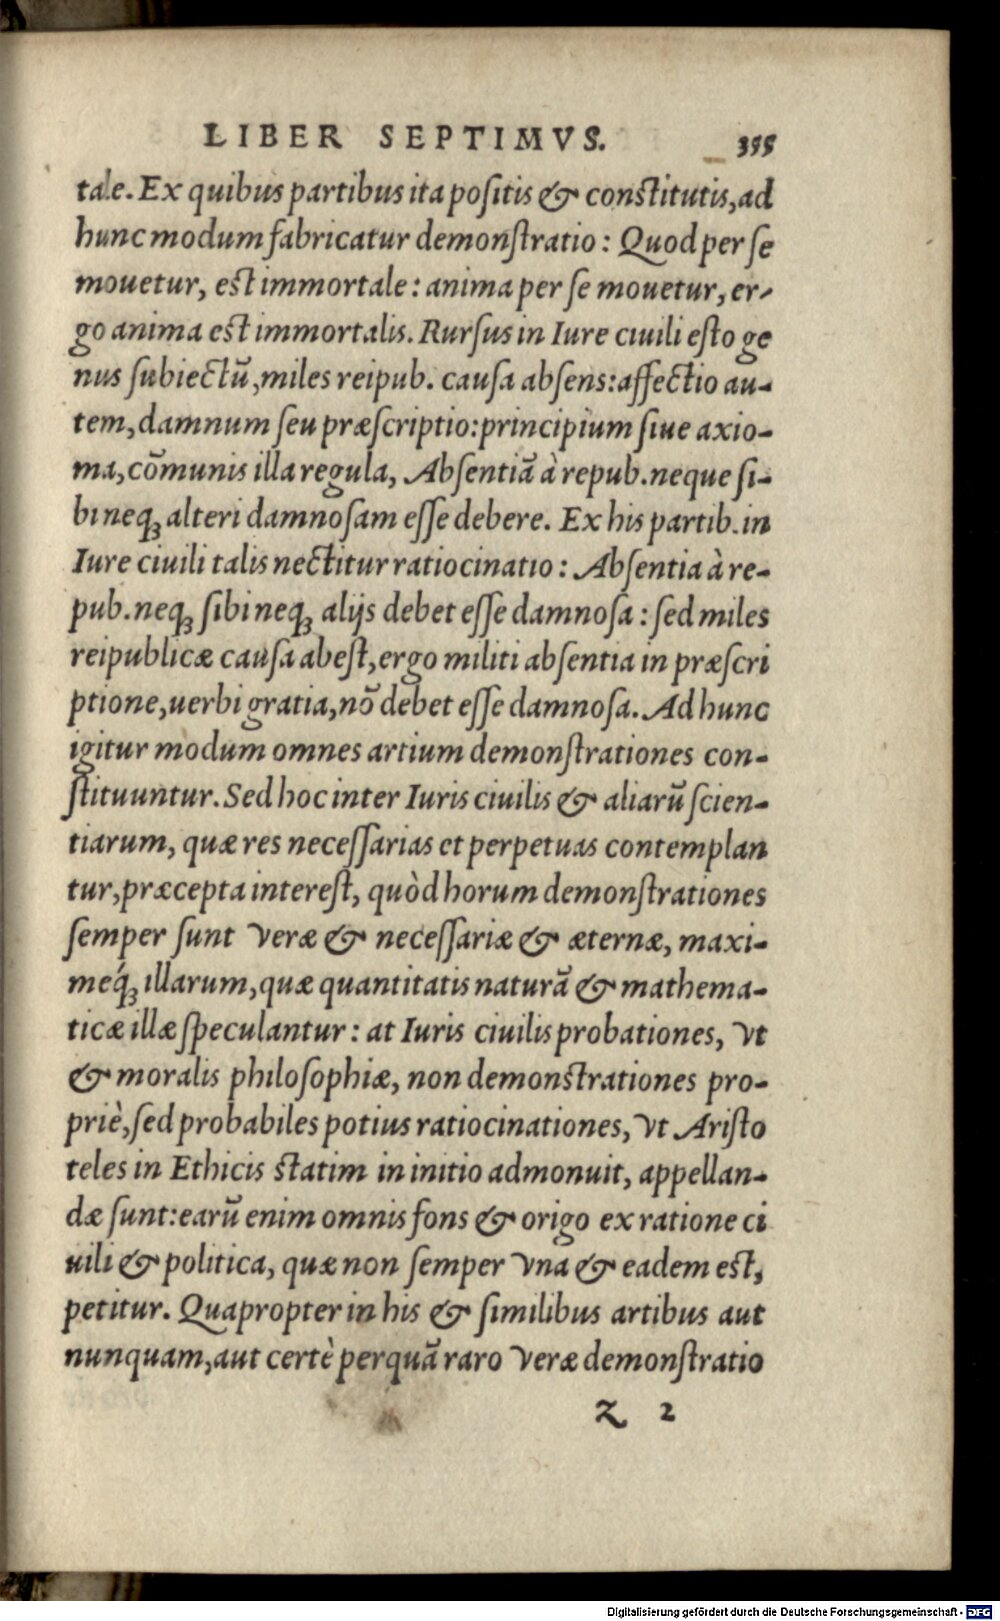 LIBER SEPTIMVS. 355
tale. Ex quibus partibus ita poſitis & conſtitutis, ad
hunc modum fabricatur demonſtratio: Quod per ſe
mouetur, eſt immortale: anima per ſe mouetur, er-
go anima eſt immortalis. Rurſus in Iure ciuili eſto ge
nus ſubiectū, miles reipub. cauſa abſens: affectio au-
tem, damnum ſeu præſcriptio: principium ſiue axio-
ma, cōmunis illa regula, Abſentiā à repub. neque ſi-
bi neq; alteri damnoſam eſſe debere. Ex his partib. in
Iure ciuili talis nectitur ratiocinatio: Abſentia à re-
pub. neq; ſibi neq; alijs debet eſſe damnoſa: ſed miles
reipublicæ cauſa abeſt, ergo militi abſentia in præſcri
ptione, uerbi gratia, nō debet eſſe damnoſa. Ad hunc
igitur modum omnes artium demonſtrationes con-
ſtituuntur. Sed hoc inter Iuris ciuilis & aliarū ſcien-
tiarum, quæ res neceſſarias et perpetuas contemplan
tur, præcepta intereſt, quòd horum demonſtrationes
ſemper ſunt veræ & neceſſariæ & æternæ, maxi-
meq́; illarum, quæ quantitatis naturā & mathema-
ticæ illæ ſpeculantur: at Iuris ciuilis probationes, vt
& moralis philoſophiæ, non demonſtrationes pro-
priè, ſed probabiles potius ratiocinationes, vt Ariſto
teles in Ethicis ſtatim in initio admonuit, appellan-
dæ ſunt: earū enim omnis fons & origo ex ratione ci
uili & politica, quæ non ſemper vna & eadem eſt,
petitur. Quapropter in his & ſimilibus artibus aut
nunquam, aut certè perquā raro veræ demonſtratio
Z 2
Digitalisierung gefördert durch die Deutsche Forschungsgemeinschaft - DFG